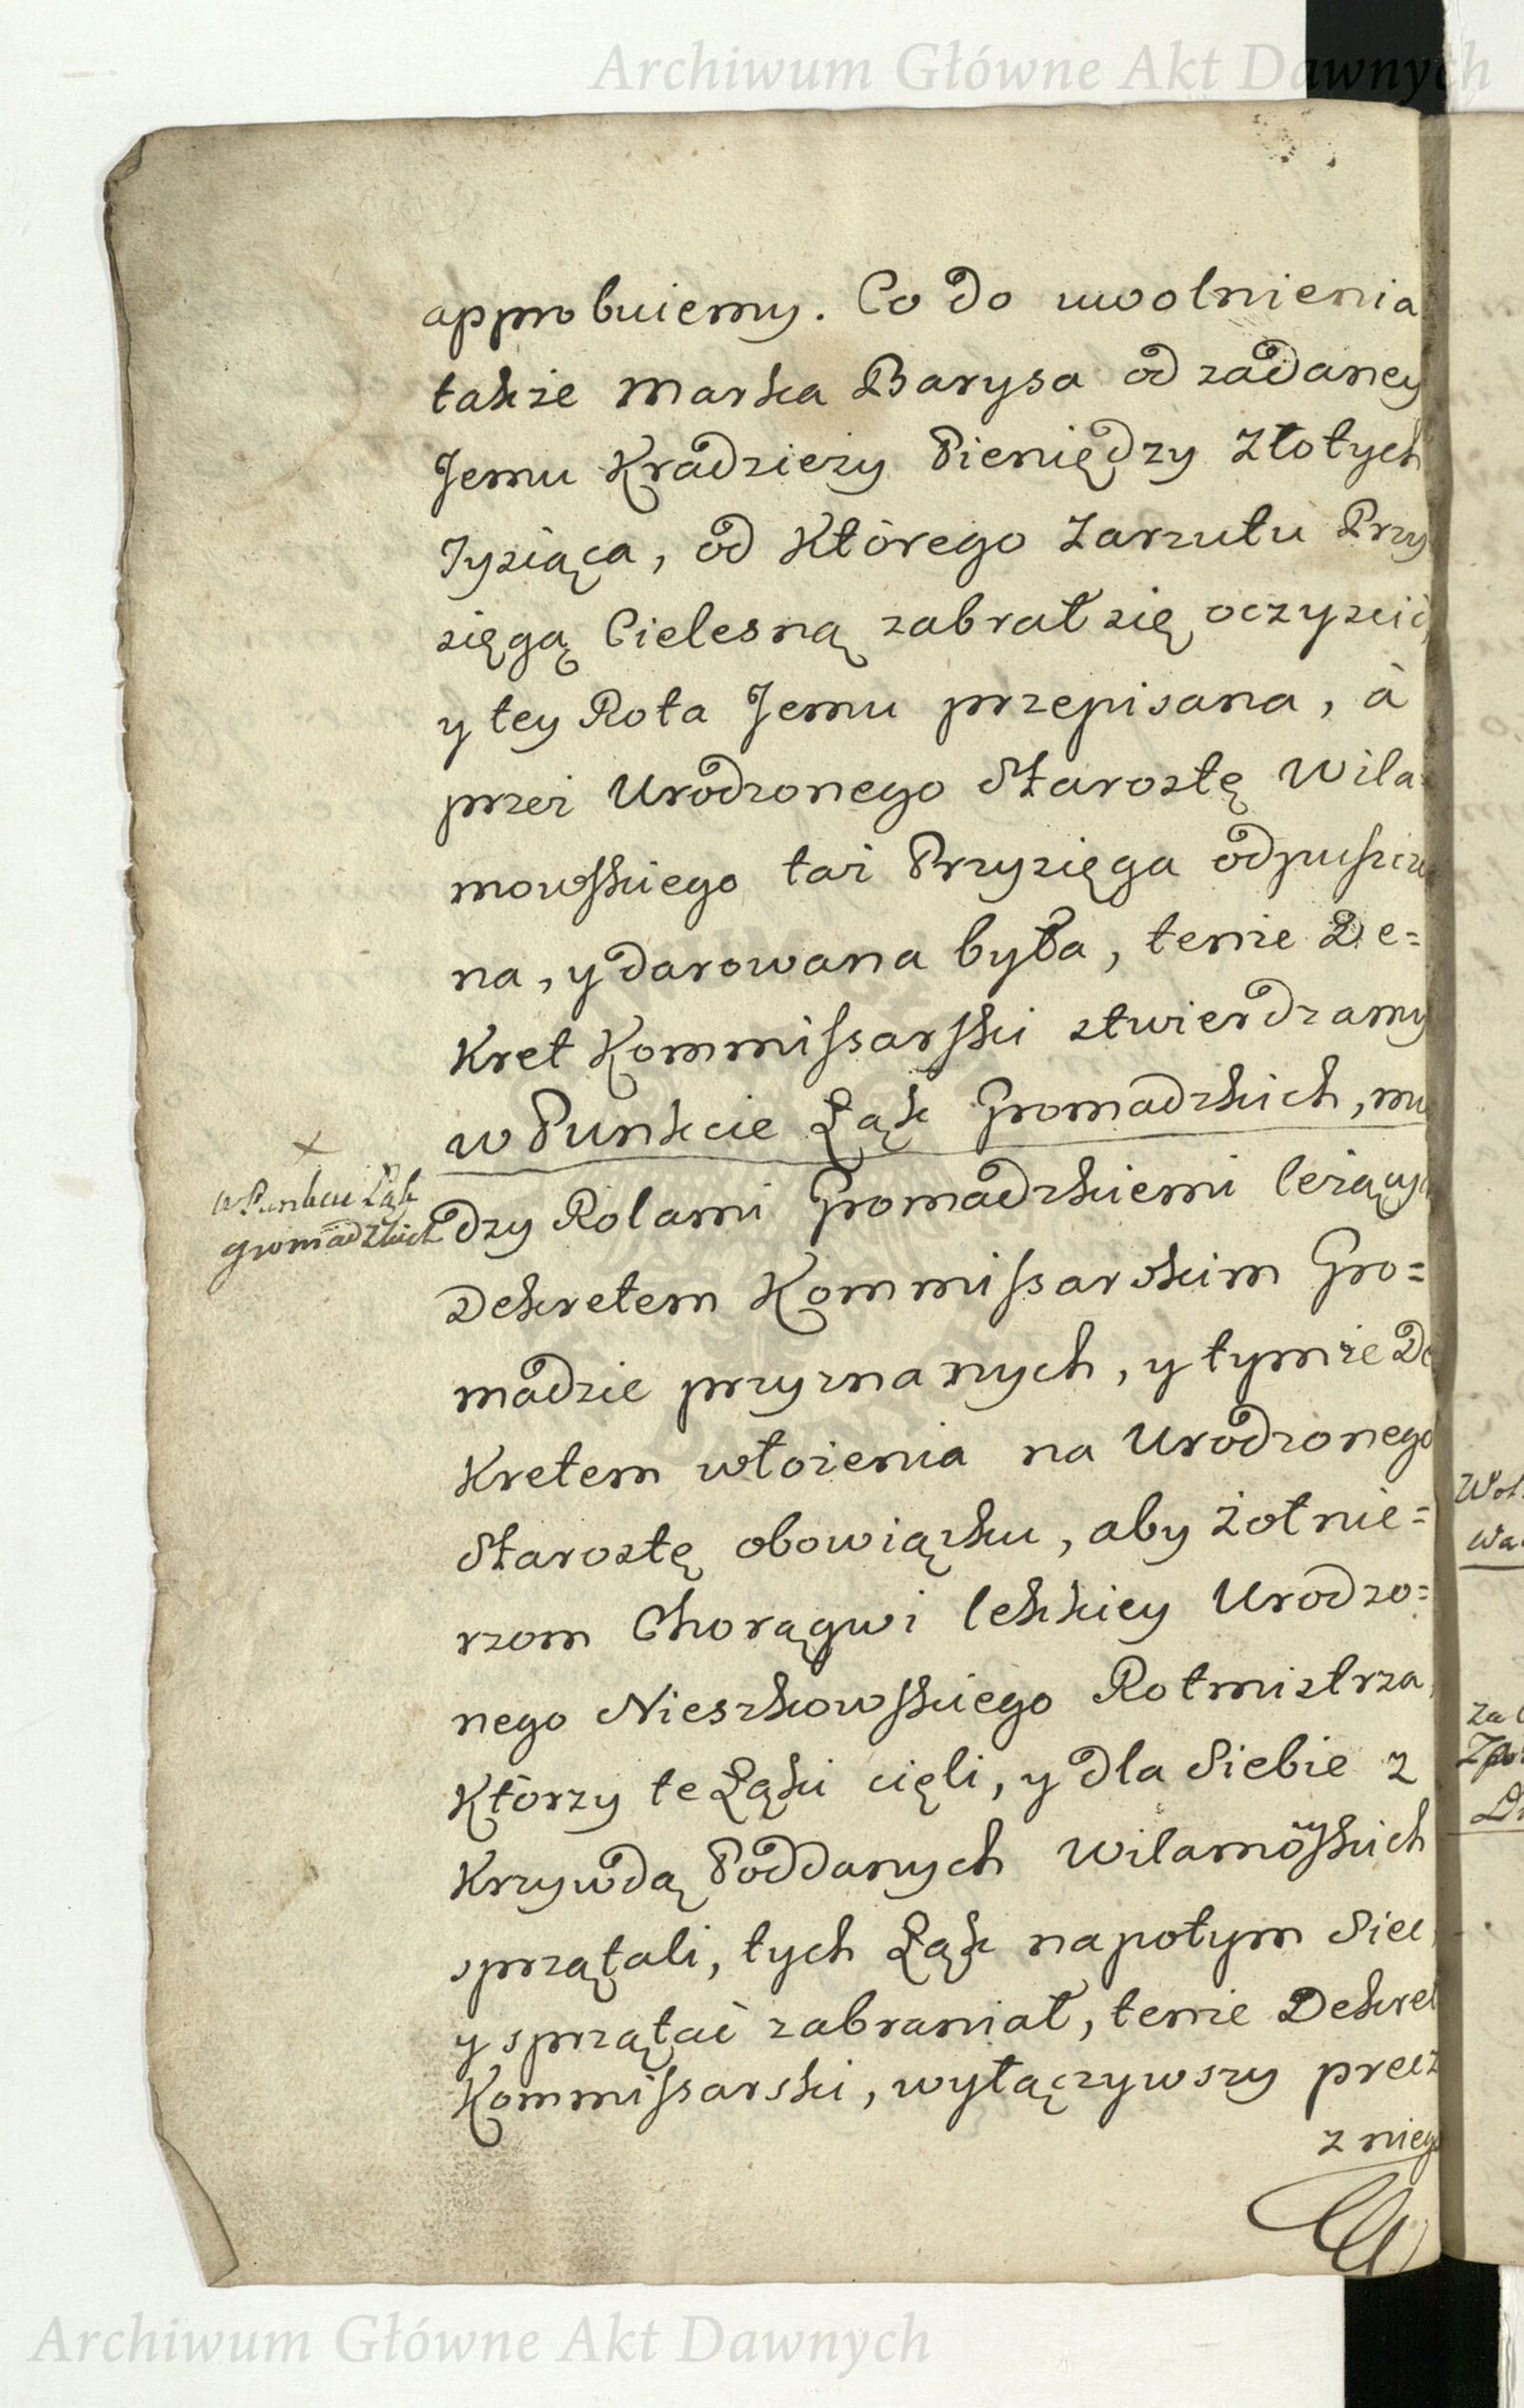 Archiwum Główne Akt Dawnych
approbuiemy. Co do uwolnienia
także Marka Barysa od zadaney
Jemu Kradzieży Pieniędzy Złotych
Tysiąca, od Którego Zarzutu Przy
sięgą Cielesną zabrał się oczyscić,
y tey Rota Jemu przepisana, à
przez Urodzonego Starostę Wila=
mowskiego taż Przysięga odpuszczo
na, y darowana była, tenże De=
Kret Kommissarski stwierdzamy
w Punkcie Łąk Gromadzkich, mię
X
w Punkcie Łąk
gromadzkich
dzy Rolami Gromadzkiemi leżących
Dekretem Kommissarskim Gro=
madzie przyznanych, y tymże De
Kretem włożenia na Urodzonego
Starostę obowiązku, aby żołnie=
rzom Chorągwi lekkiey Urodzo=
nego Nieszkowskiego Rotmistrza,
Którzy te Łąki cięli, y dla Siebie z
Krzywdą Poddanych Wilamowskich
sprzątali, tych Łąk napotym Siec,
y sprzątać zabraniał, tenże Dekret
Kommissarski, wyłączywszy precz
z niego
Archiwum Główne Akt Dawnych